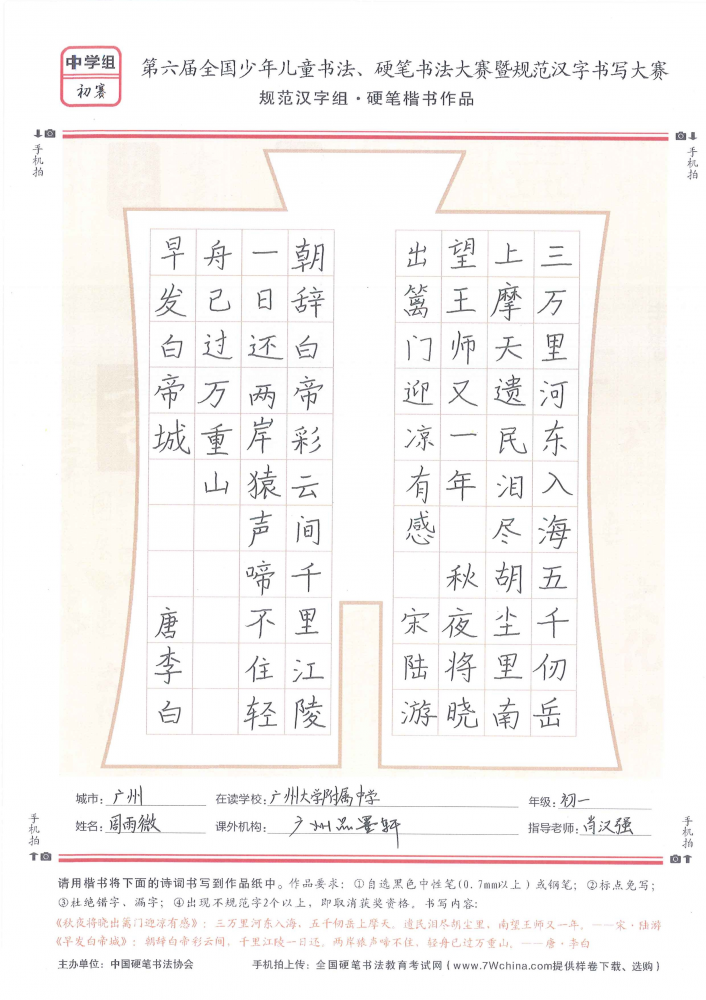 中学组
初赛
第六届全国少年儿童书法、硬笔书法大赛暨规范汉字书写大赛
规范汉字组·硬笔楷书作品
手机拍
手机拍
三万里河东入海五千仞岳
上摩天遗民泪尽胡尘里南
望王师又一年 秋夜将晓
出篱门迎凉有感 宋陆游
朝辞白帝彩云间千里江陵
一日还两岸猿声啼不住轻
舟已过万重山
早发白帝城 唐李白
城市：广州 在读学校：广州大学附属中学 年级：初一
姓名：周雨微 课外机构：广州品墨轩 指导老师：肖汉强
手机拍
手机拍
请用楷书将下面的诗词书写到作品纸中。作品要求：①自选黑色中性笔(0.7mm以上)或钢笔；②标点免写；
③杜绝错字、漏字；④出现不规范字2个以上，即取消获奖资格。书写内容：
《秋夜将晓出篱门迎凉有感》：三万里河东入海，五千仞岳上摩天。遗民泪尽胡尘里，南望王师又一年。——宋·陆游
《早发白帝城》：朝辞白帝彩云间，千里江陵一日还。两岸猿声啼不住，轻舟已过万重山。——唐·李白
主办单位：中国硬笔书法协会 手机拍上传：全国硬笔书法教育考试网(www.7Wchina.com提供样卷下载、选购)